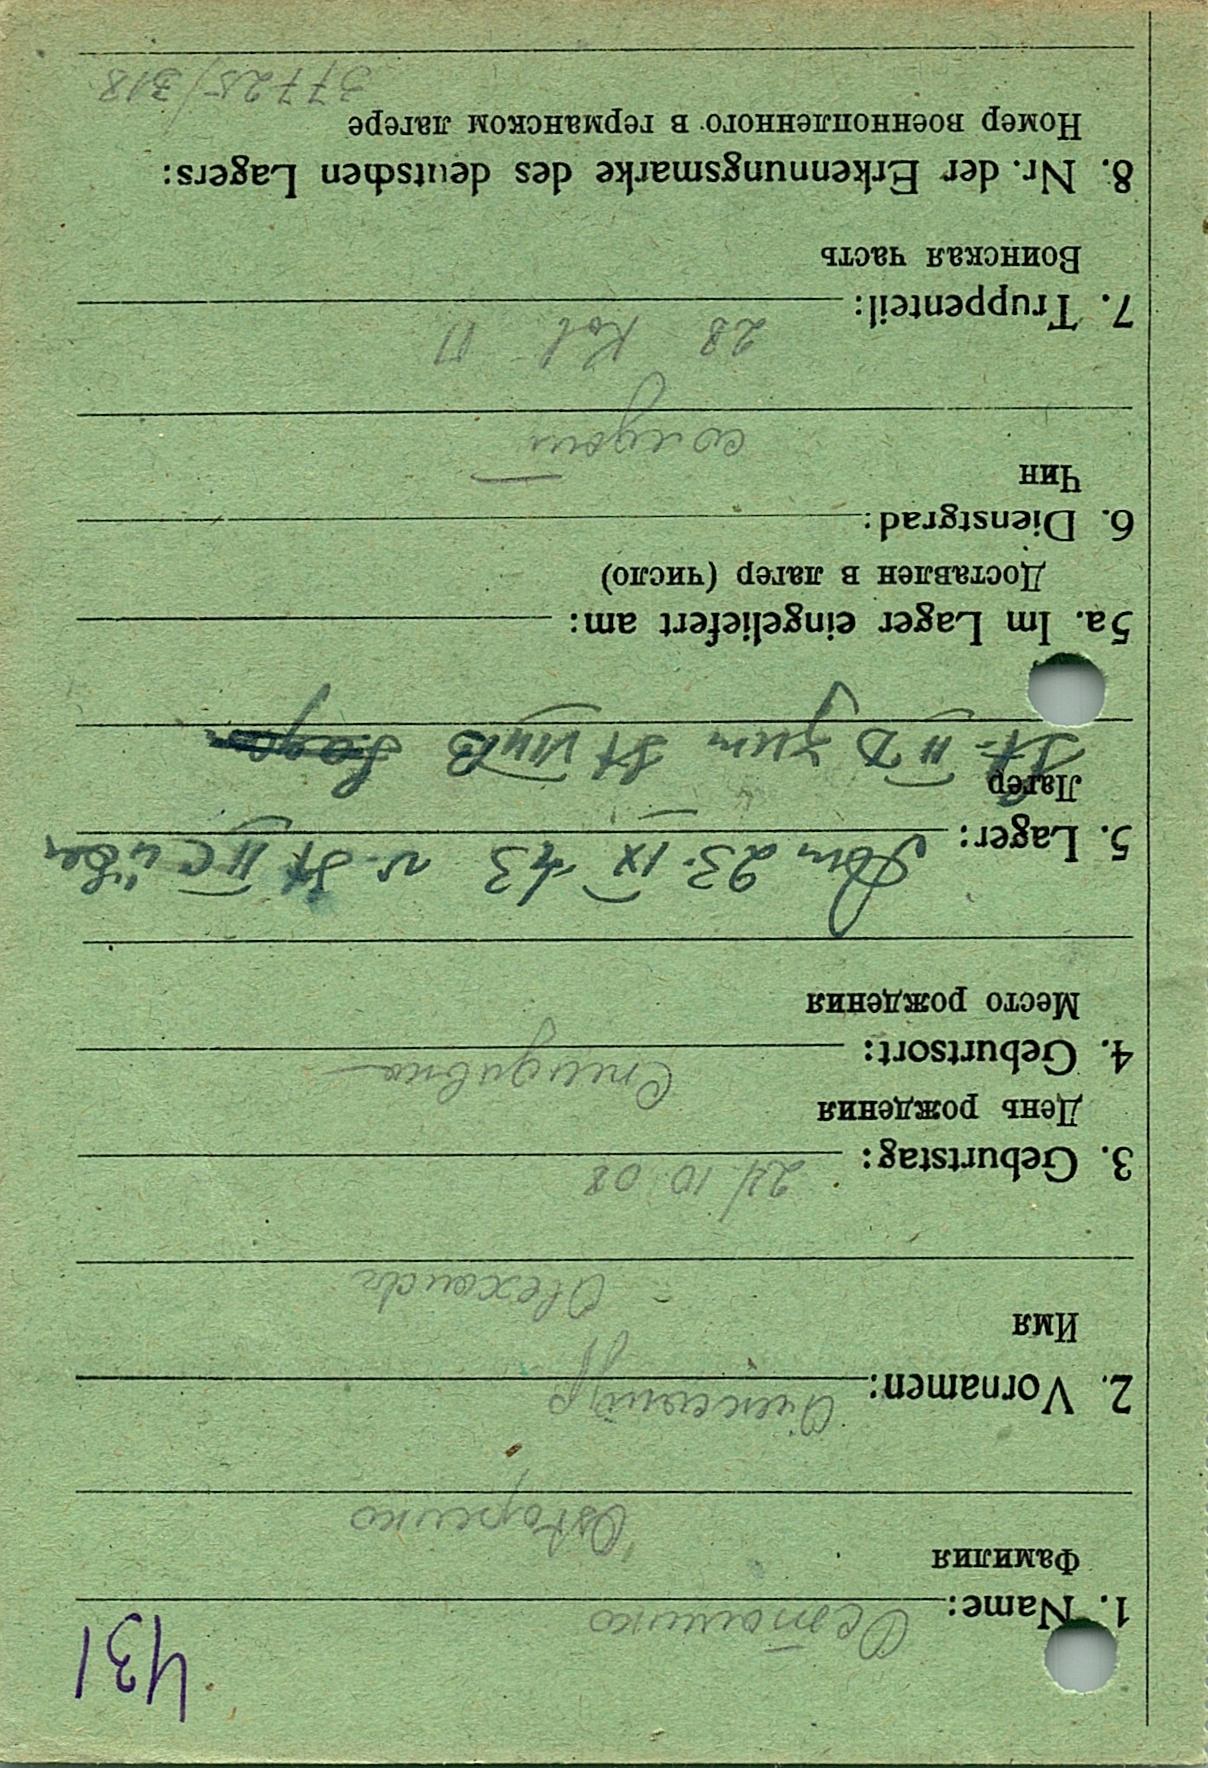 431
1. Name:
Фамилия
2. Vornamen: Александр
Имя
3. Geburtstag: 24 10 08
День рождения
4. Geburtsort:
Место рождения
5. Lager: Am 23. IX 43 v. St II C über
Лагер
St. II D zum St VIII B Sagan
5a. Im Lager eingeliefert am:
Доставлен в лагер (число)
6. Dienstgrad:
Чин
солдат
7. Truppenteil: 28
Воинская часть
8. Nr. der Erkennungsmarke des deutschen Lagers:
Номер военнопленного в германском лагере
37725/318